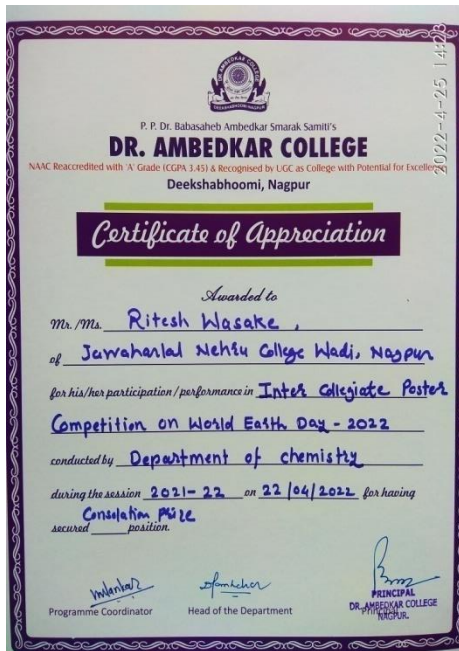 2022-4-25 14:23
DR. AMBEDKAR COLLEGE
DEEKSHABHOOMI, NAGPUR
P. P. Dr. Babasaheb Ambedkar Smarak Samiti's
DR. AMBEDKAR COLLEGE
NAAC Reaccredited with 'A' Grade (CGPA 3.45) & Recognised by UGC as College with Potential for Excellence
Deekshabhoomi, Nagpur
Certificate of Appreciation
Awarded to
Mr. /Ms. Ritesh Wasake,
of Jawaharlal Nehru College Wadi, Nagpur
for his/her participation / performance in Inter Collegiate Poster
Competition on World Earth Day - 2022
conducted by Department of chemistry
during the session 2021-22 on 22/04/2022 for having
Consolation Prize
secured position.
Programme Coordinator
Head of the Department
PRINCIPAL
DR. AMBEDKAR COLLEGE
NAGPUR.